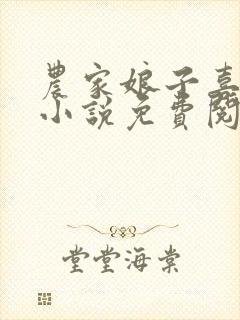 農家娘子喜
小說免費閱
堂堂海棠